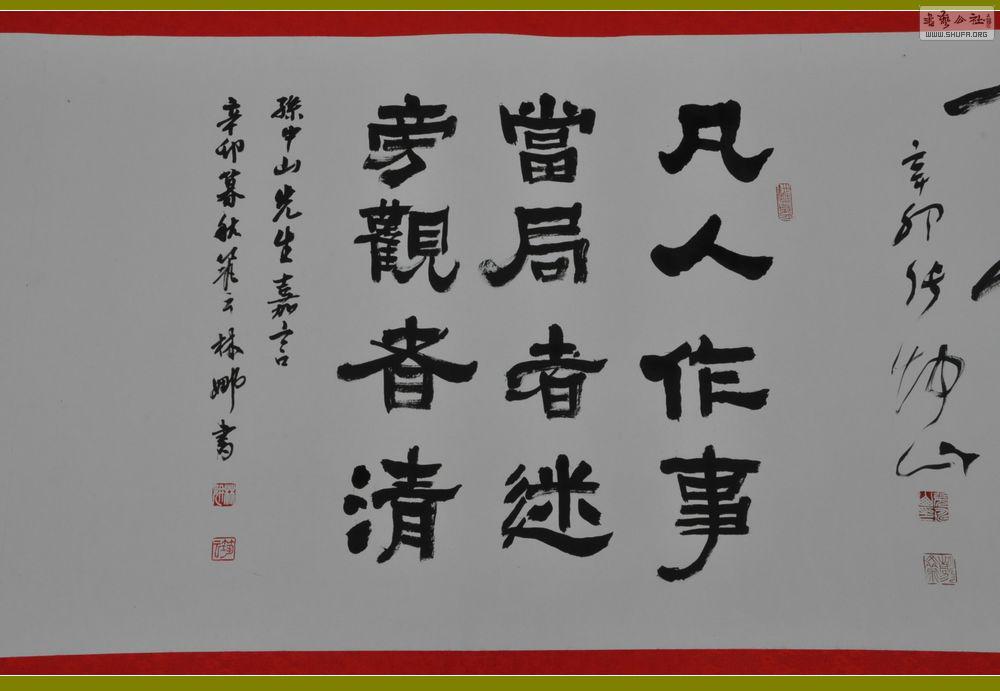 辛卯张炳山
凡人作事
當局者迷
旁觀者清
孫中山先生嘉言
辛卯暮秋箬云林娜書
书艺公社
WWW.SHUFA.ORG